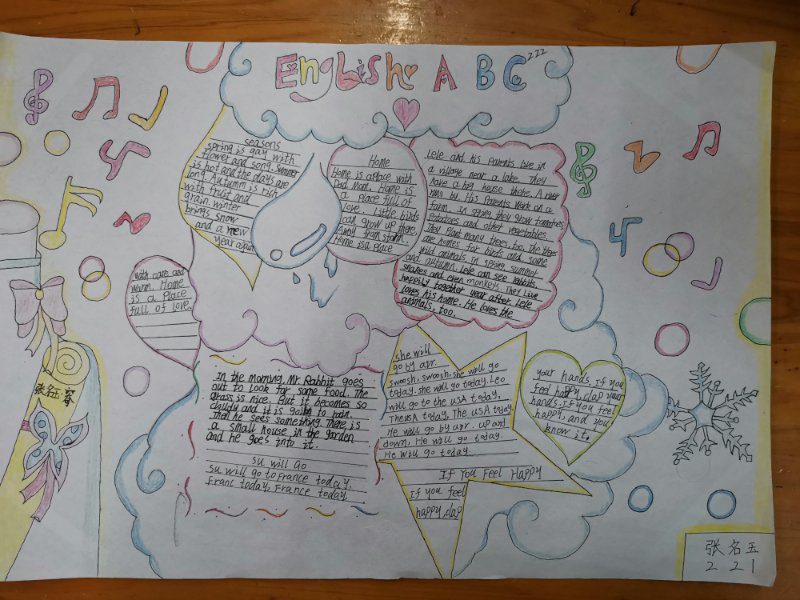 English A B C
222
seasons
spring is gay with
flower and song summer
is hot and the days are
long Autumn is rich
with fruit and
grain winter
brings snow
and a new
year again
Home
Home is a place with
Dad Mom. Home is
a place full of
love. Little birds
can grow up there
Away from storm
Home is a place
with care and
warm. Home
is a place
full of love.
Lele and his parents live in
a village near a lake. They
have a big house there. A river
runs by. His parents work on a
farm. in spring they grow tomatoes
potatoes and other vegetables
They plant many trees too. The trees
are homes for birds and some
wild animals in spring summer
and autumn. Lele can see rabbits,
snakes and even monkeys. They live
happily together year after Lele
loves his home. He loves the
animals, too.
In the morning, Mr Rabbit goes
out to look for some food. The
grass is nice. But it becomes so
cloudy and it is going to rain.
Then he sees something. There is
a small house in the garden
and he goes into it.
su will go
su will go to France today.
Franc today, France today
she will
go by apr.
Swoosh, swoosh. she will go
today. she will go today. Leo
will go to the USA today.
The USA today. The USA today
He will go by apr. up and
down. He will go today
He will go today.
If You Feel Happy
If you feel
happy clap
your hands. If you
feel happy, clap your
hands. if you feel
happy, and you
know it.
张名
张名玉
221